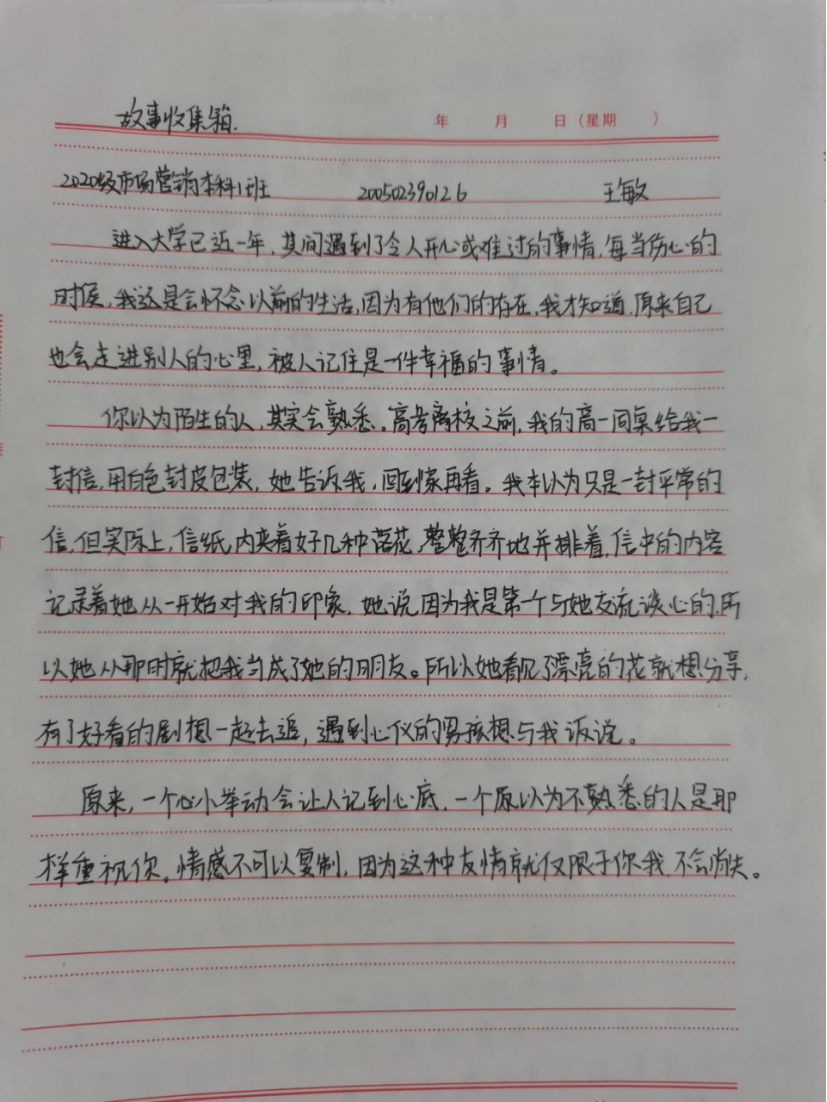 故事收集箱.
年 月 日(星期 )
2020级市场营销本科1班 200502390126 王敏
进入大学已近一年,其间遇到了令人开心或难过的事情,每当伤心的
时候,我还是会怀念以前的生活,因为有他们的存在,我才知道,原来自己
也会走进别人的心里,被人记住是一件幸福的事情。
你以为陌生的人,其实会熟悉。高考离校之前,我的高一同桌给我一
封信,用白色封皮包装,她告诉我,回到家再看。我本以为只是一封平常的
信,但实际上,信纸内夹着好几种落花,整整齐齐地并排着,信中的内容
记录着她从一开始对我的印象,她说因为我是第一个与她交流谈心的,所
以她从那时就把我当成了她的朋友。所以她看见了漂亮的花就想分享,
有了好看的剧想一起去追,遇到心仪的男孩想与我诉说。
原来,一个小小举动会让人记到心底,一个原以为不熟悉的人是那
样重视你。情感不可以复制,因为这种友情就仅限于你我,不会消失。